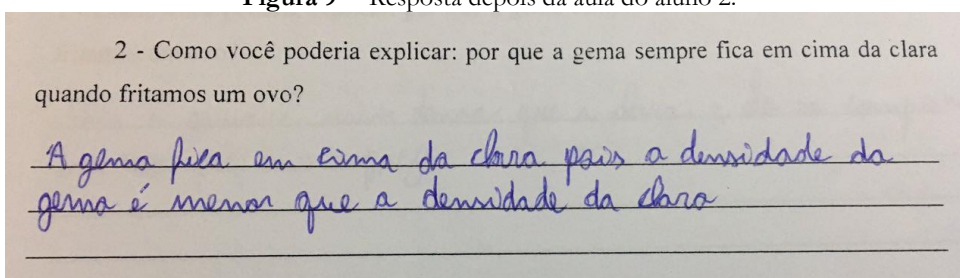 Figura 9 – Resposta depois da aula do aluno 2.
2 - Como você poderia explicar: por que a gema sempre fica em cima da clara
quando fritamos um ovo?
A gema fica em cima da clara pois a densidade da
gema é menor que a densidade da clara